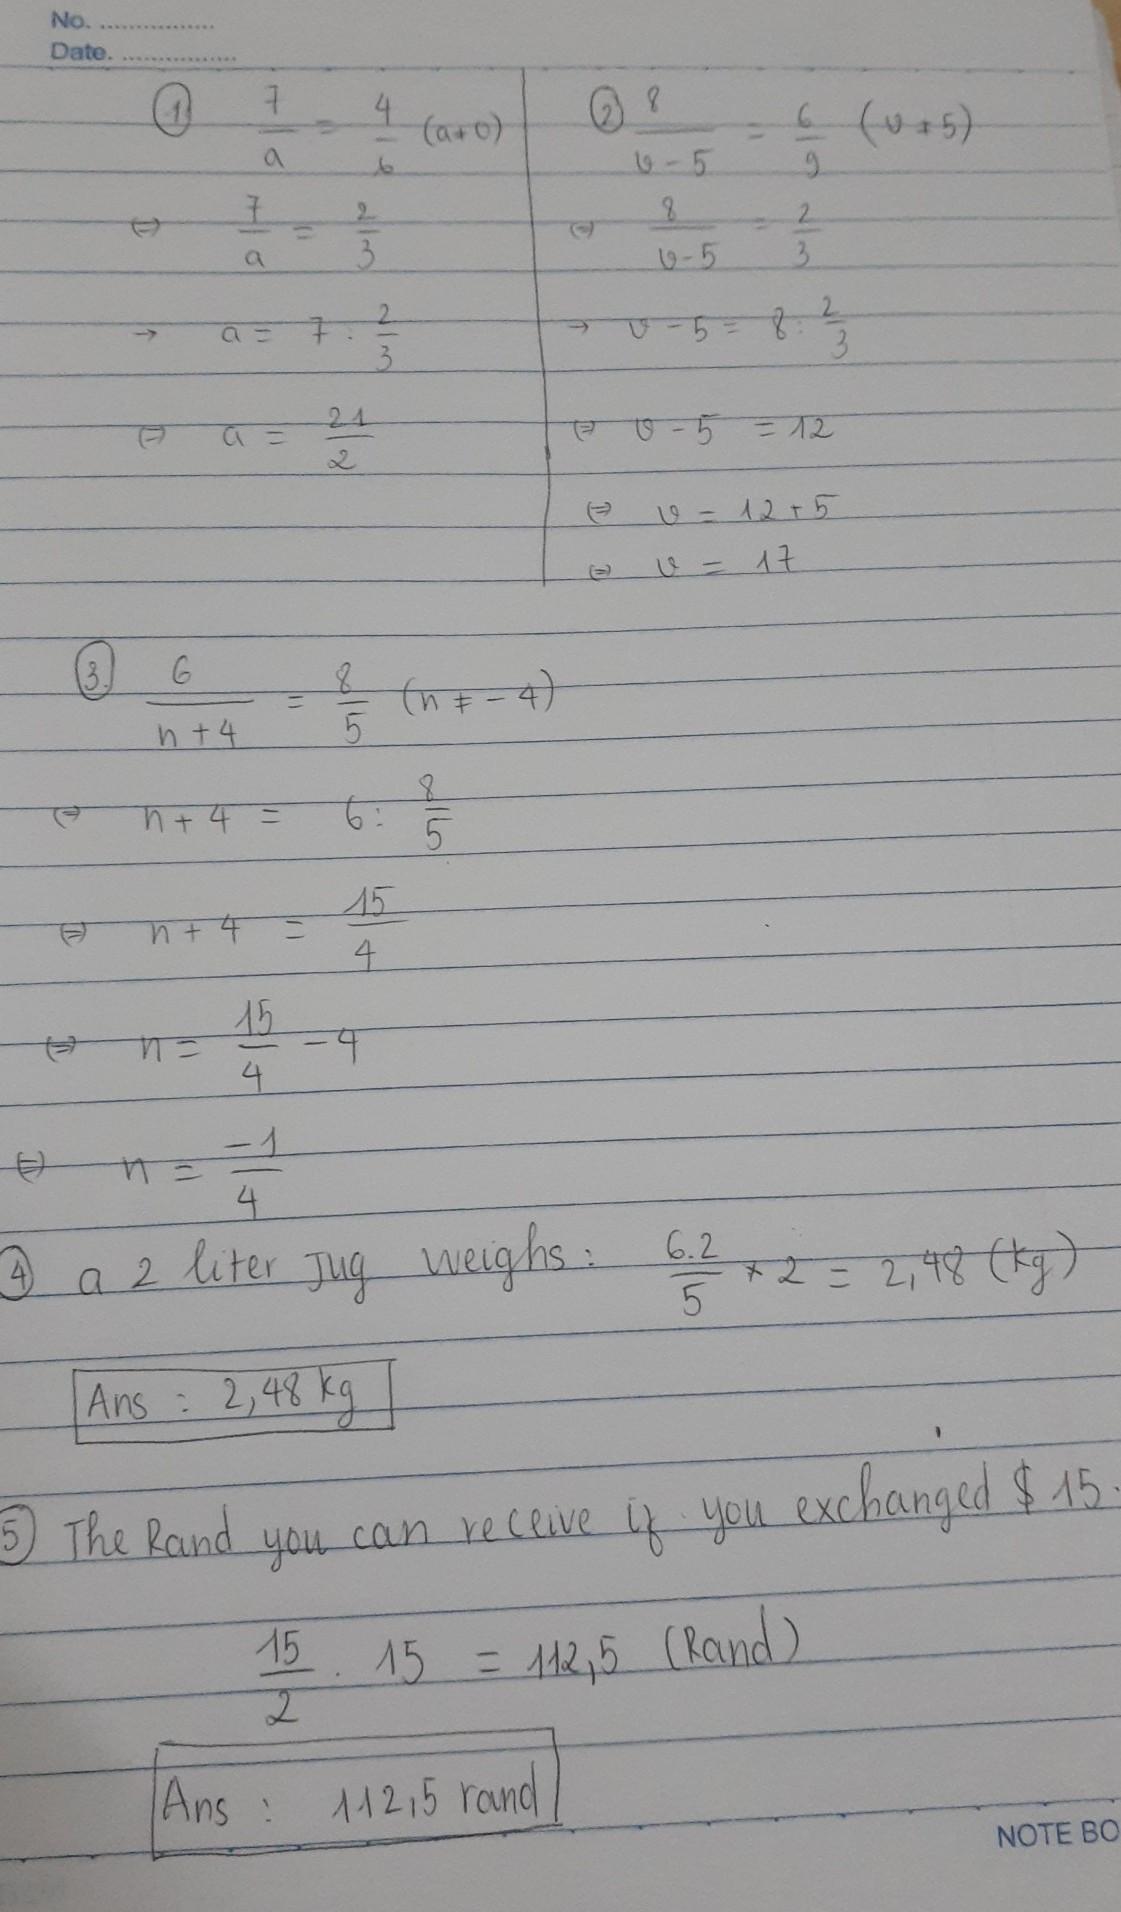 No. ................
Date. ................
① 7/a = 4/6 (a≠0)
⇔ 7/a = 2/3
→ a = 7 : 2/3
⇔ a = 21/2
② 8/(v-5) = 6/9 (v≠5)
⇔ 8/(v-5) = 2/3
→ v-5 = 8 : 2/3
⇔ v-5 = 12
⇔ v = 12+5
⇔ v = 17
③ 6/(n+4) = 8/5 (n≠-4)
⇔ n+4 = 6 : 8/5
⇔ n+4 = 15/4
⇔ n = 15/4 - 4
⇔ n = -1/4
④ a 2 liter Jug weighs: 6.2/5 × 2 = 2,48 (kg)
Ans : 2,48 kg
⑤ The Rand you can receive if you exchanged $15.
15/2 . 15 = 112,5 (Rand)
Ans : 112,5 rand
NOTE BO